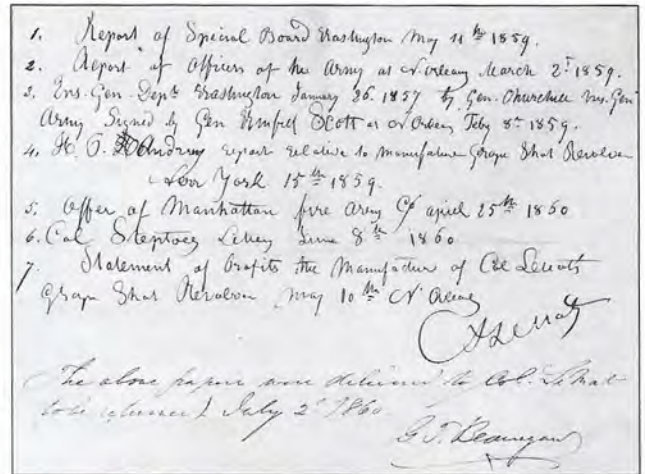 1. Report of Special Board Washington May 11th 1859.
2. Report of Officers of the Army at N Orleans March 2d 1859.
3. Ins. Gen. Dept Washington January 26. 1857 by Gen. Churchill Ins. Gen
Army Signed by Gen Scott at N Orleans Feby 8th 1859.
4. H. P. Andrews report relative to manufacture Grape Shot Revolver
New York 15th 1859.
5. Offer of Manhattan fire Arm Co april 25th 1860
6. Col Steptoes Letter June 8th 1860
7. Statement of Profits the Manufacture of Col Lemats
Grape Shot Revolver May 10th N Orleans
A LeMat
The above papers were delivered to Col. LeMat
to be returned July 2d 1860.
G. T. Beauregard